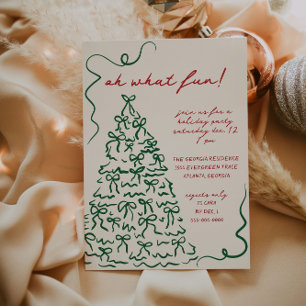 oh what fun!
join us for a
holiday party
saturday dec. 12
7 pm
THE GEORGIA RESIDENCE
5555 EVERGREEN TRACE
ATLANTA, GEORGIA
regrets only
TO CARA
BY DEC. 1
555-555-5555